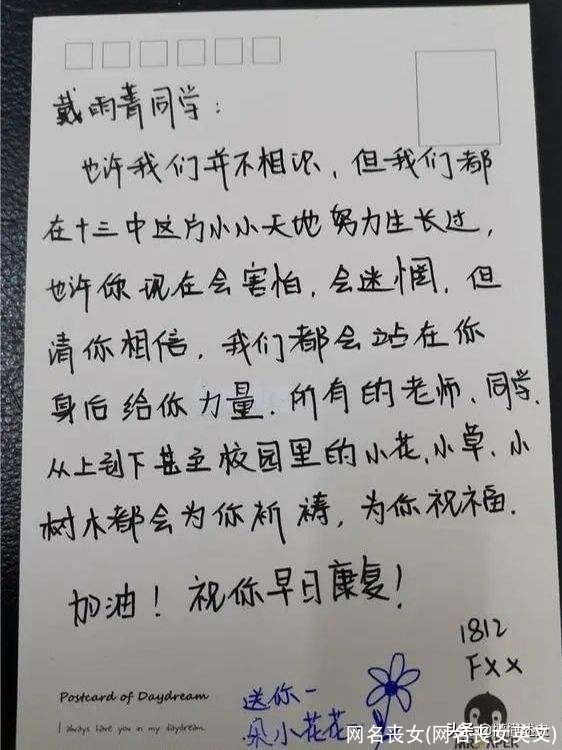 戴雨菁同学：
也许我们并不相识，但我们都
在十三中这方小小天地努力生长过，
也许你现在会害怕，会迷惘，但
请你相信，我们都会站在你
身后给你力量．所有的老师、同学、
从上到下甚至校园里的小花、小草、小
树木都会为你祈祷，为你祝福．
加油！祝你早日康复！
1812
FXX
送你一
朵小花花
Postcard of Daydream
I always have you in my daydream
MR. PAPER
网名丧女(网名丧女英文)